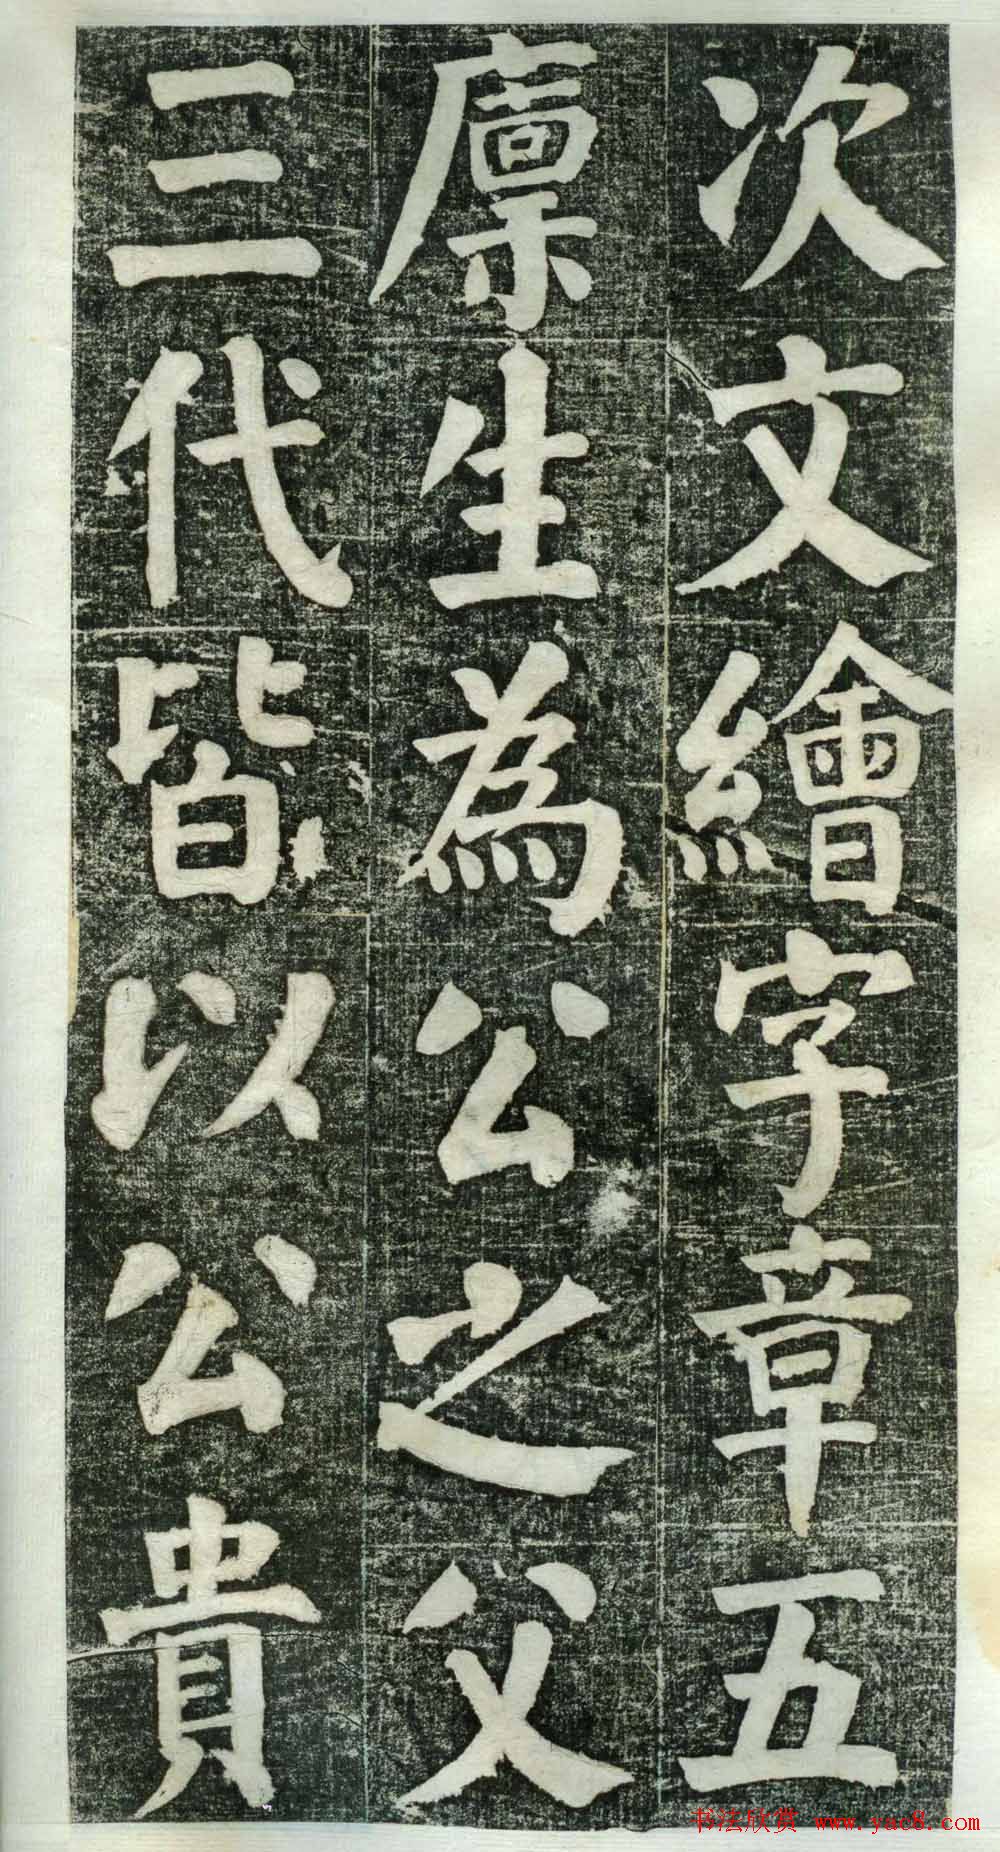 次文繪字章五
廩生為公之父
三代皆以公貴
书法欣赏 www.yac8.com